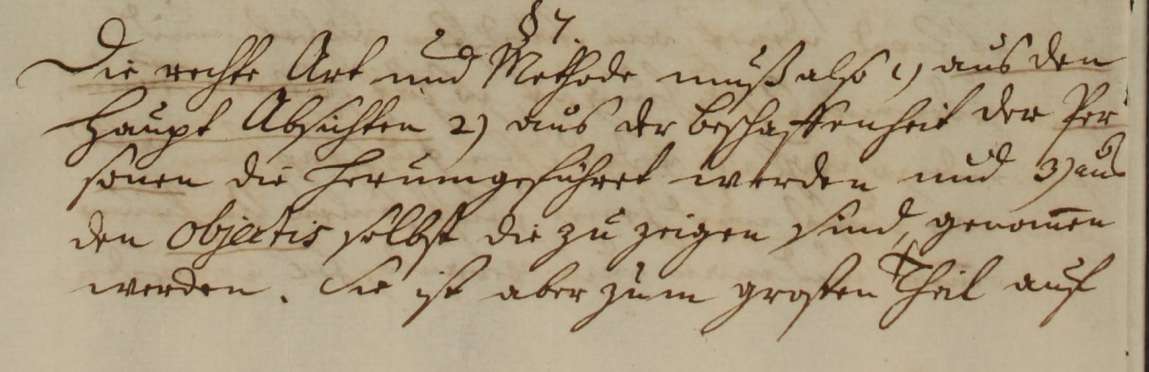 § 7.
Die rechte Art und Methode muß also 1) aus den
Haupt Absichten 2) aus der Beschaffenheit der Per
sonen die herumgeführet werden und 3) aus
den objectis selbst die zu zeigen sind, genom̅en
werden. Sie ist aber zum großen Theil auf